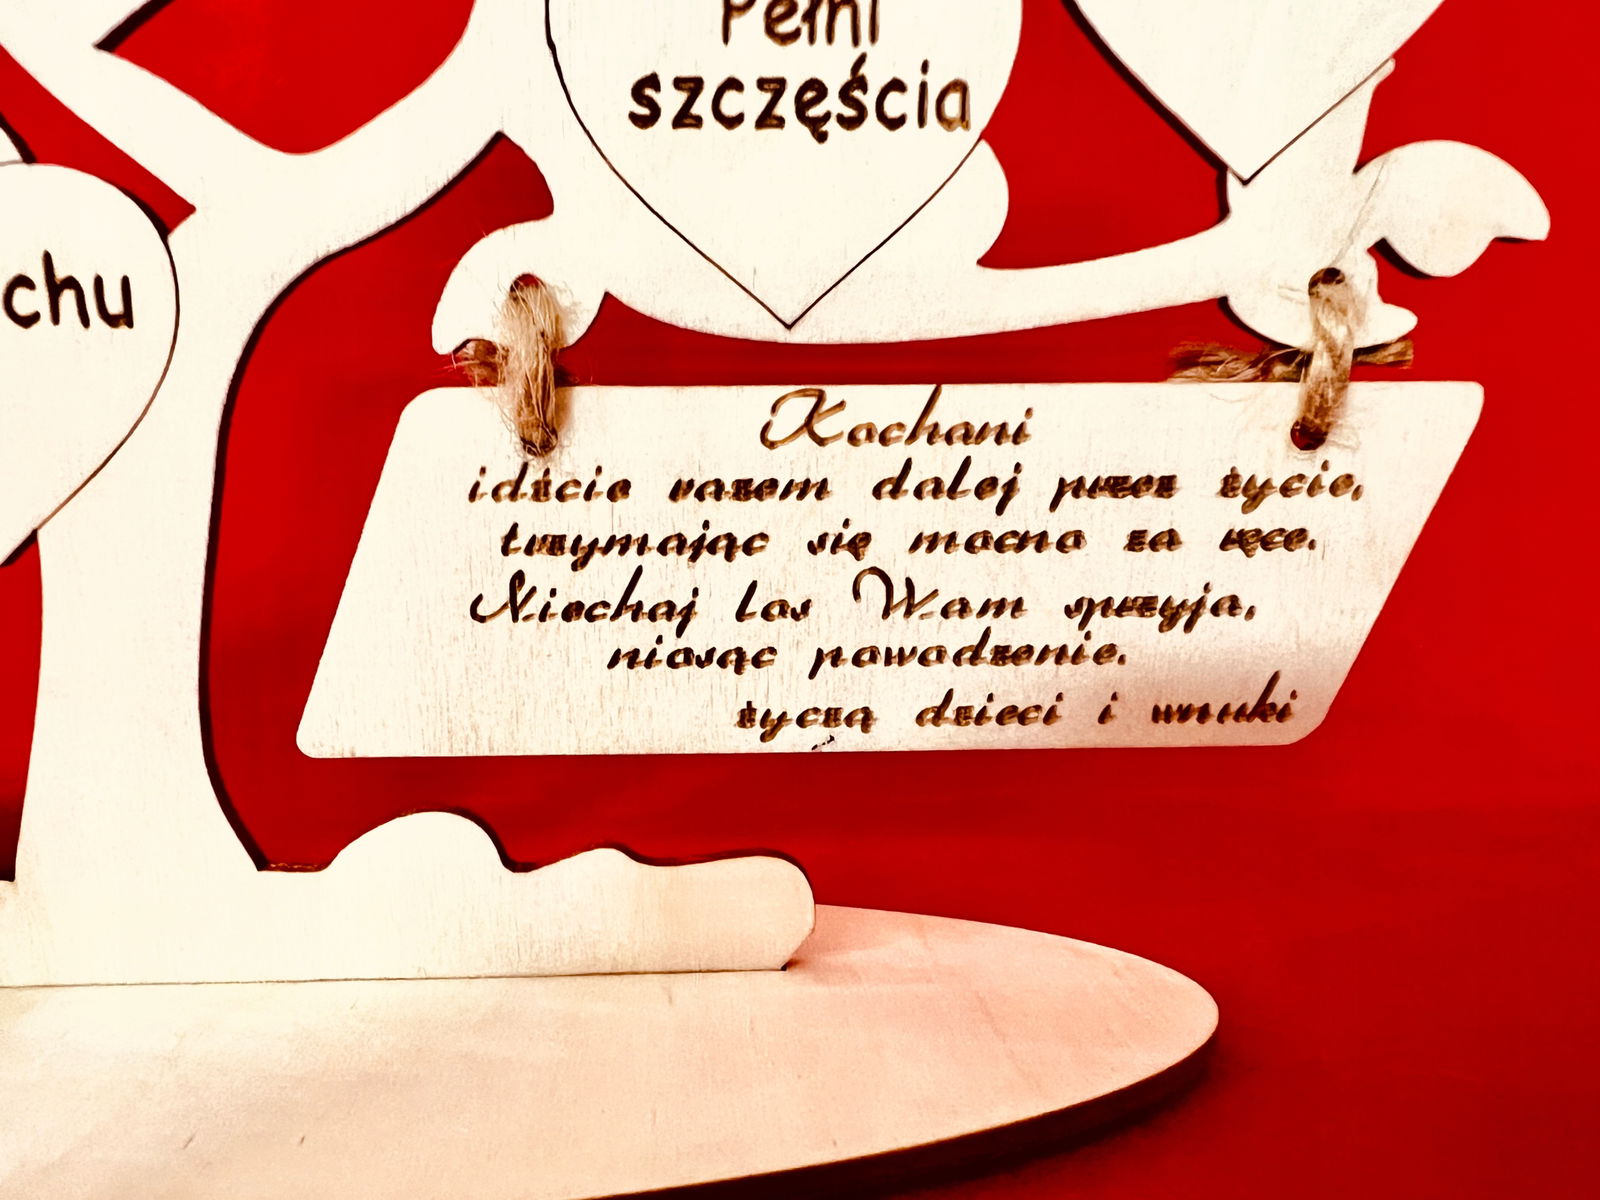 Pełni
szczęścia
chu
Kochani
idźcie razem dalej przez życie,
trzymając się mocno za ręce.
Niechaj los Wam sprzyja,
niosąc powodzenie.
życzą dzieci i wnuki